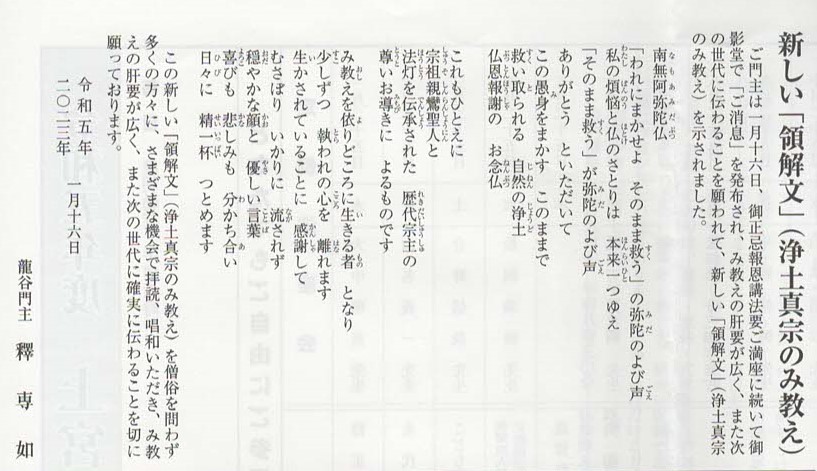 新しい「領解文」(浄土真宗のみ教え)
ご門主は一月十六日、御正忌報恩講法要ご満座に続いて御
影堂で「ご消息」を発布され、み教えの肝要が広く、また次
の世代に伝わることを願われて、新しい「領解文」(浄土真宗
のみ教え)を示されました。
南無阿弥陀仏
「われにまかせよ そのまま救う」の弥陀のよび声
私の煩悩と仏のさとりは 本来一つゆえ
「そのまま救う」が弥陀のよび声
ありがとう といただいて
この愚身をまかす このままで
救い取られる 自然の浄土
仏恩報謝の お念仏
これもひとえに
宗祖親鸞聖人と
法灯を伝承された 歴代宗主の
尊いお導きに よるものです
み教えを依りどころに生きる者 となり
少しずつ 執われの心を 離れます
生かされていることに 感謝して
むさぼり いかりに 流されず
穏やかな顔と 優しい言葉
喜びも 悲しみも 分かち合い
日々に 精一杯 つとめます
この新しい「領解文」(浄土真宗のみ教え)を僧俗を問わず
多くの方々に、さまざまな機会で拝読、唱和いただき、み教
えの肝要が広く、また次の世代に確実に伝わることを切に
願っております。
令和五年
二〇二三年 一月十六日
龍谷門主 釋専如